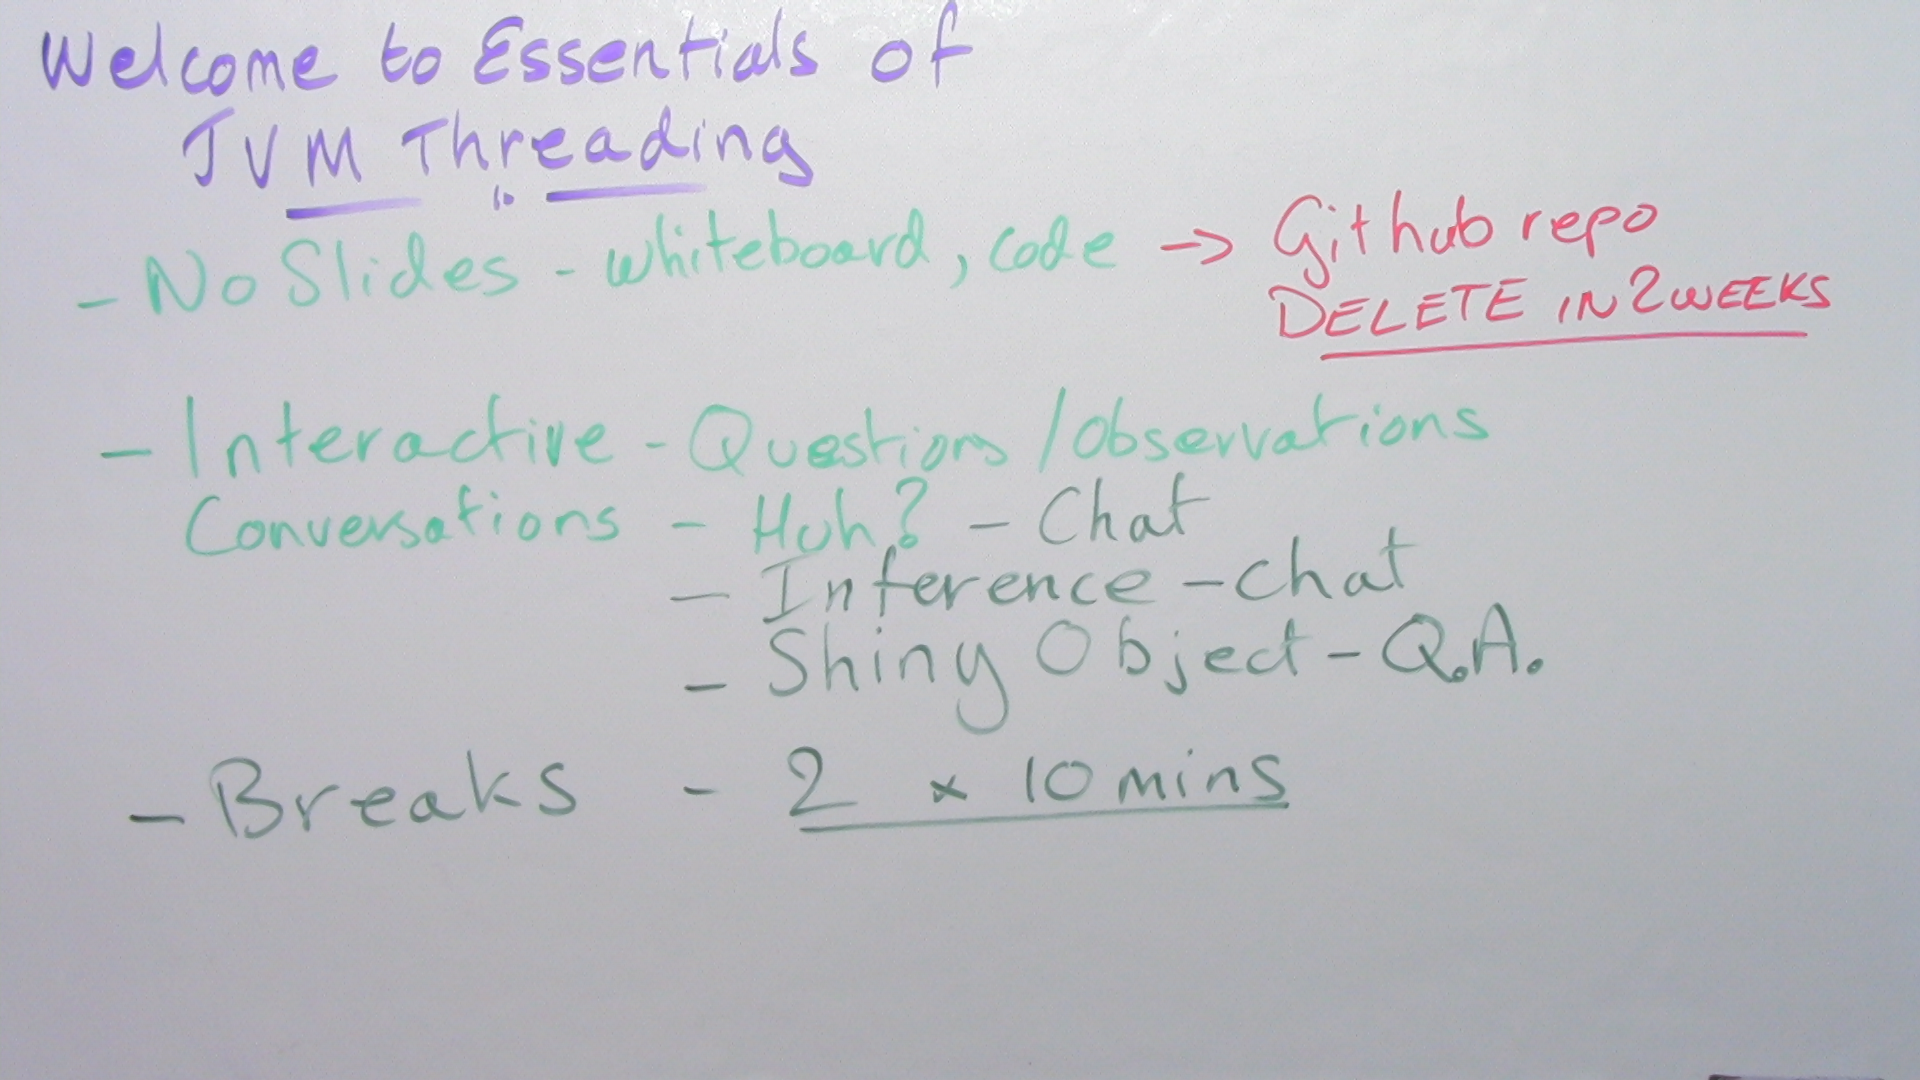 Welcome to Essentials of
JVM Threading
- No Slides - whiteboard, code → Github repo
DELETE IN 2 WEEKS
- Interactive - Questions / Observations
Conversations - Huh? - Chat
- Inference - chat
- Shiny Object - Q.A.
- Breaks - 2 x 10 mins